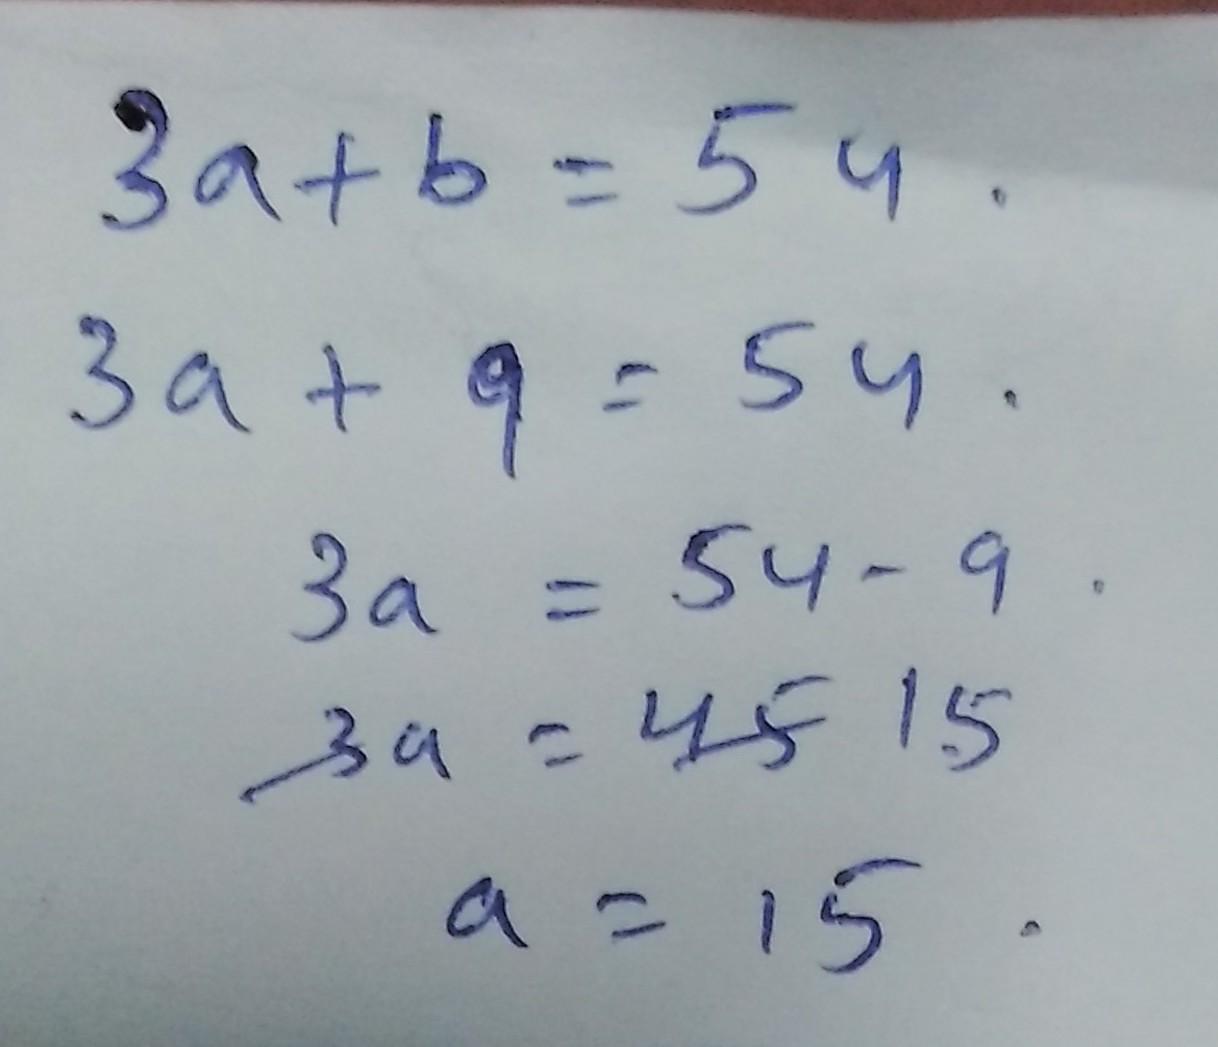 3a + b = 54 .
3a + 9 = 54 .
3a = 54 - 9 .
3a = 45 15
a = 15 .